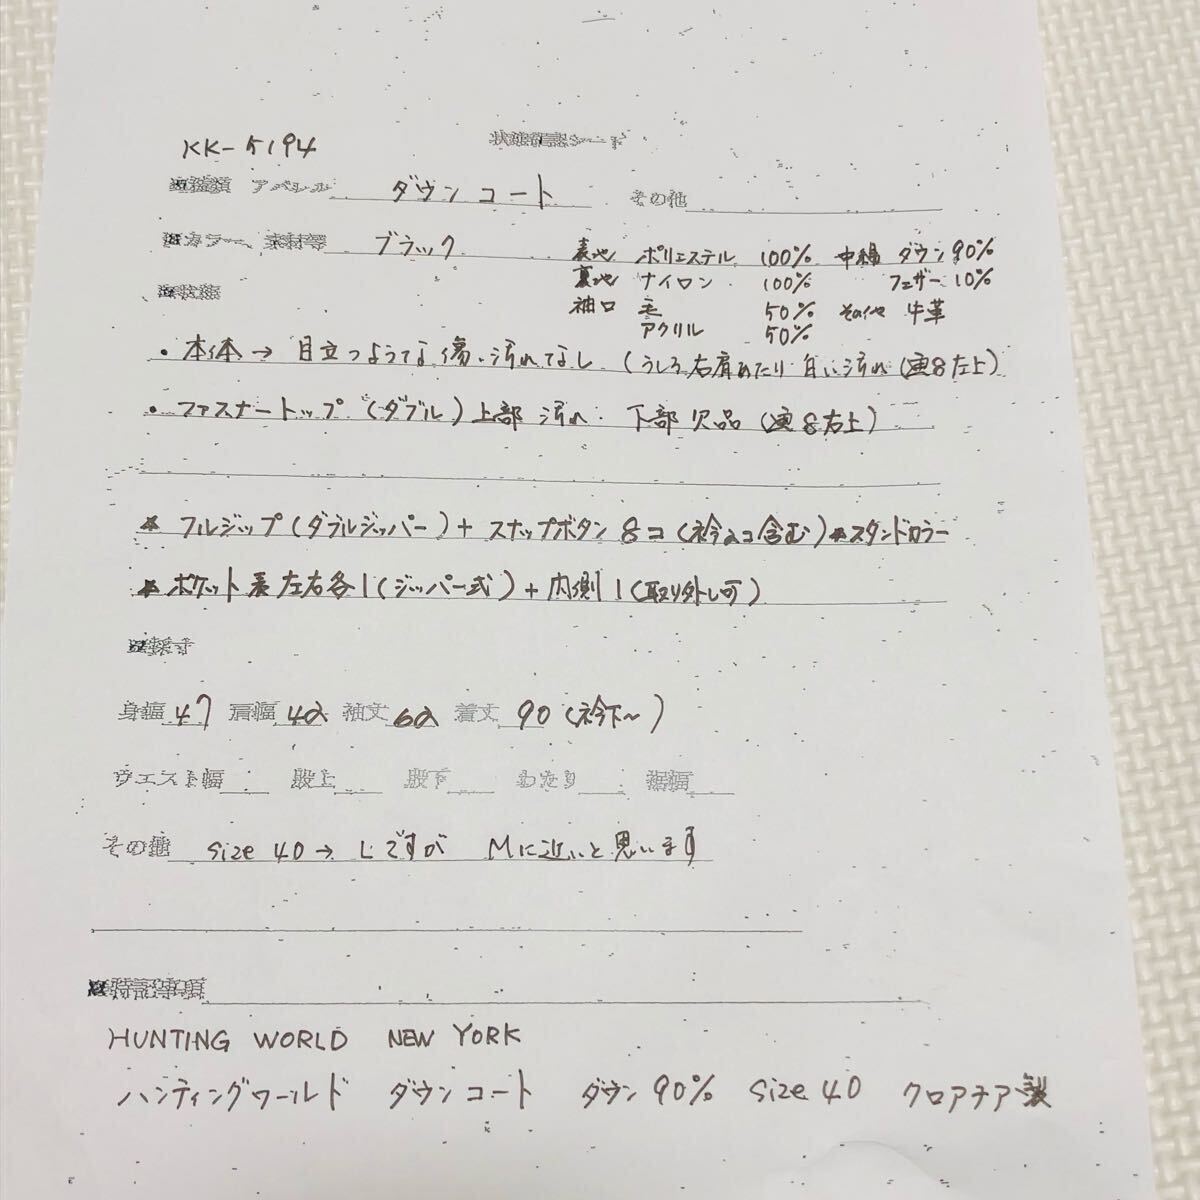 状態確認シート
KK-5194
■種類 アパレル ダウンコート その他
■カラー、素材等 ブラック 表地 ポリエステル 100% 中綿 ダウン 90%
裏地 ナイロン 100% フェザー 10%
■状態 袖口 毛 50% その他 牛革
アクリル 50%
・本体→ 目立つような傷、汚れなし (うしろ右肩あたり 白い汚れ (画8左上)
・ファスナートップ (ダブル) 上部 汚れ・下部 欠品 (画8右上)
* フルジップ (ダブルジッパー) + スナップボタン 8コ (衿2コ含む) *スタンドカラー
* ポケット 表 左右各1 (ジッパー式) + 内側1 (取り外し可)
■採寸
身幅 47 肩幅 42 袖丈 62 着丈 90 (衿下~)
ウエスト幅 股上 股下 わたり 裾幅
その他 size 40→ Lですが Mに近いと思います
■特記事項
HUNTING WORLD NEW YORK
ハンティングワールド ダウンコート ダウン 90% size 40 クロアチア製